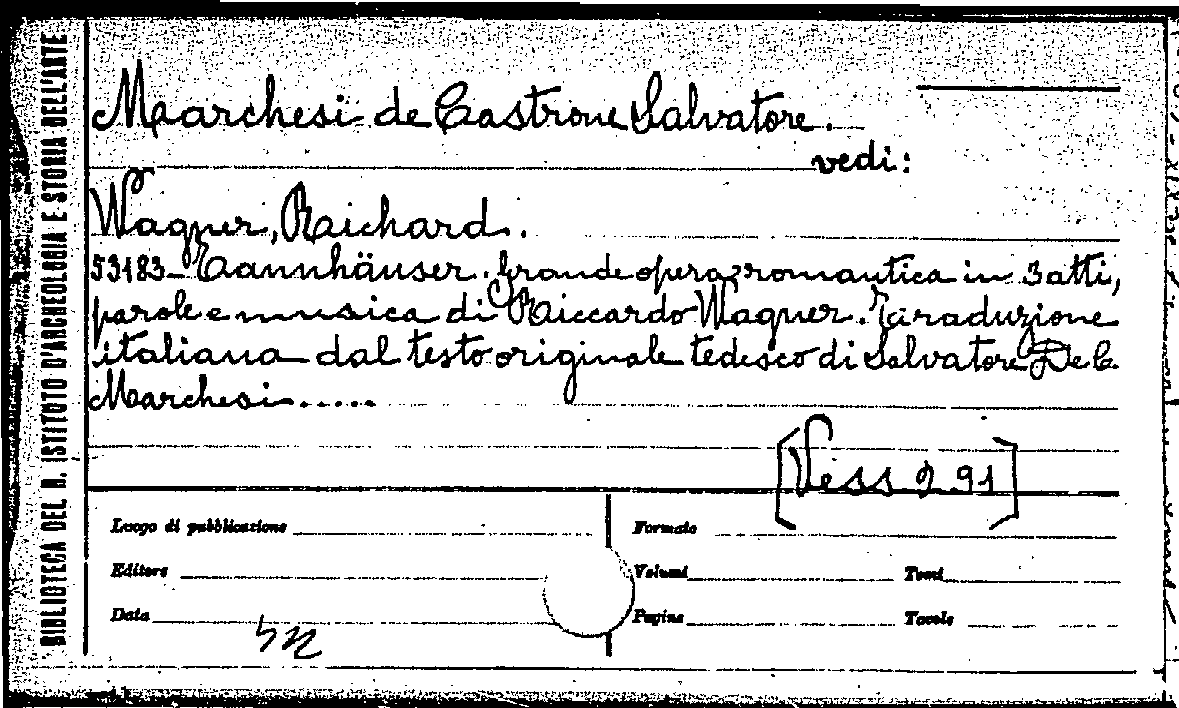 BIBLIOTECA DEL R. ISTITUTO D'ARCHEOLOGIA E STORIA DELL'ARTE
Marchesi de Castrone Salvatore.
vedi:
Wagner, Richard.
53183- Tannhäuser. Grande opera romantica in 3 atti,
parole e musica di Riccardo Wagner. Traduzione
italiana dal testo originale tedesco di Salvatore De C.
Marchesi.....
[Vess 2 91]
Luogo di pubblicazione
Formato
Editore
Volumi
Tomi
Data
Pagine
Tavole